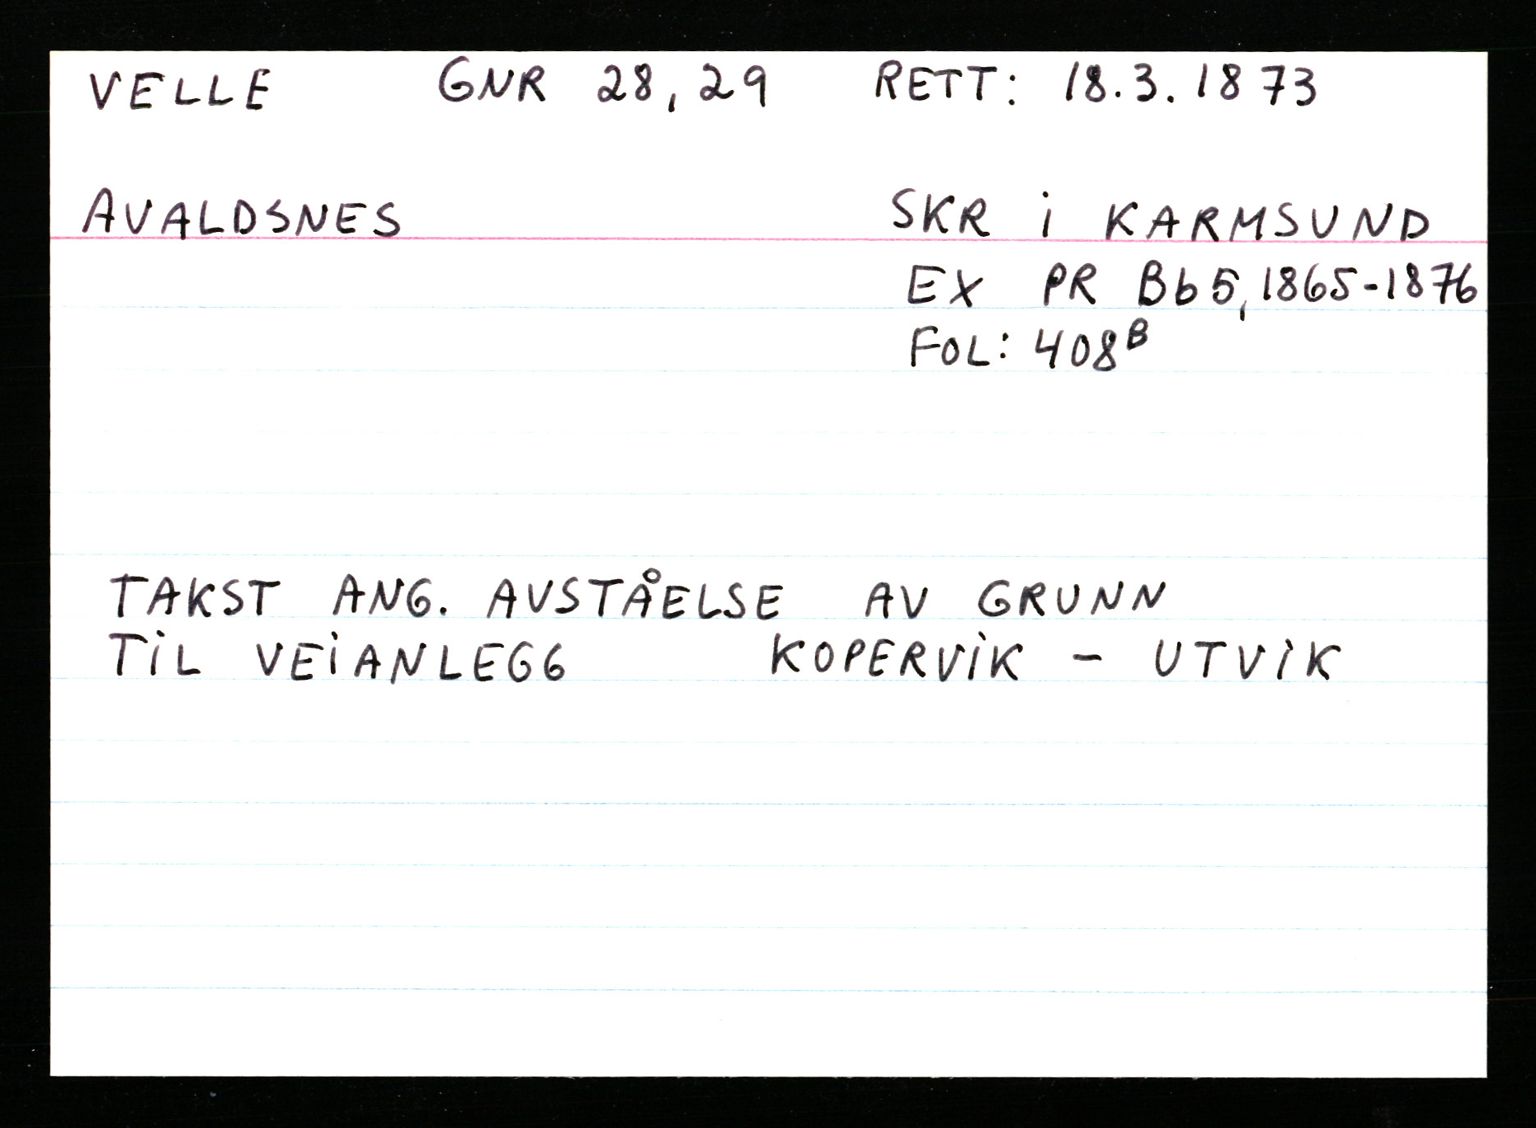 VELLE GNR 28, 29 RETT: 18.3.1873
AVALDSNES SKR i KARMSUND
EX PR Bb 5, 1865-1876
FOL: 408B
TAKST ANG. AVSTÅELSE AV GRUNN
TiL VEiANLEGG KOPERViK - UTViK